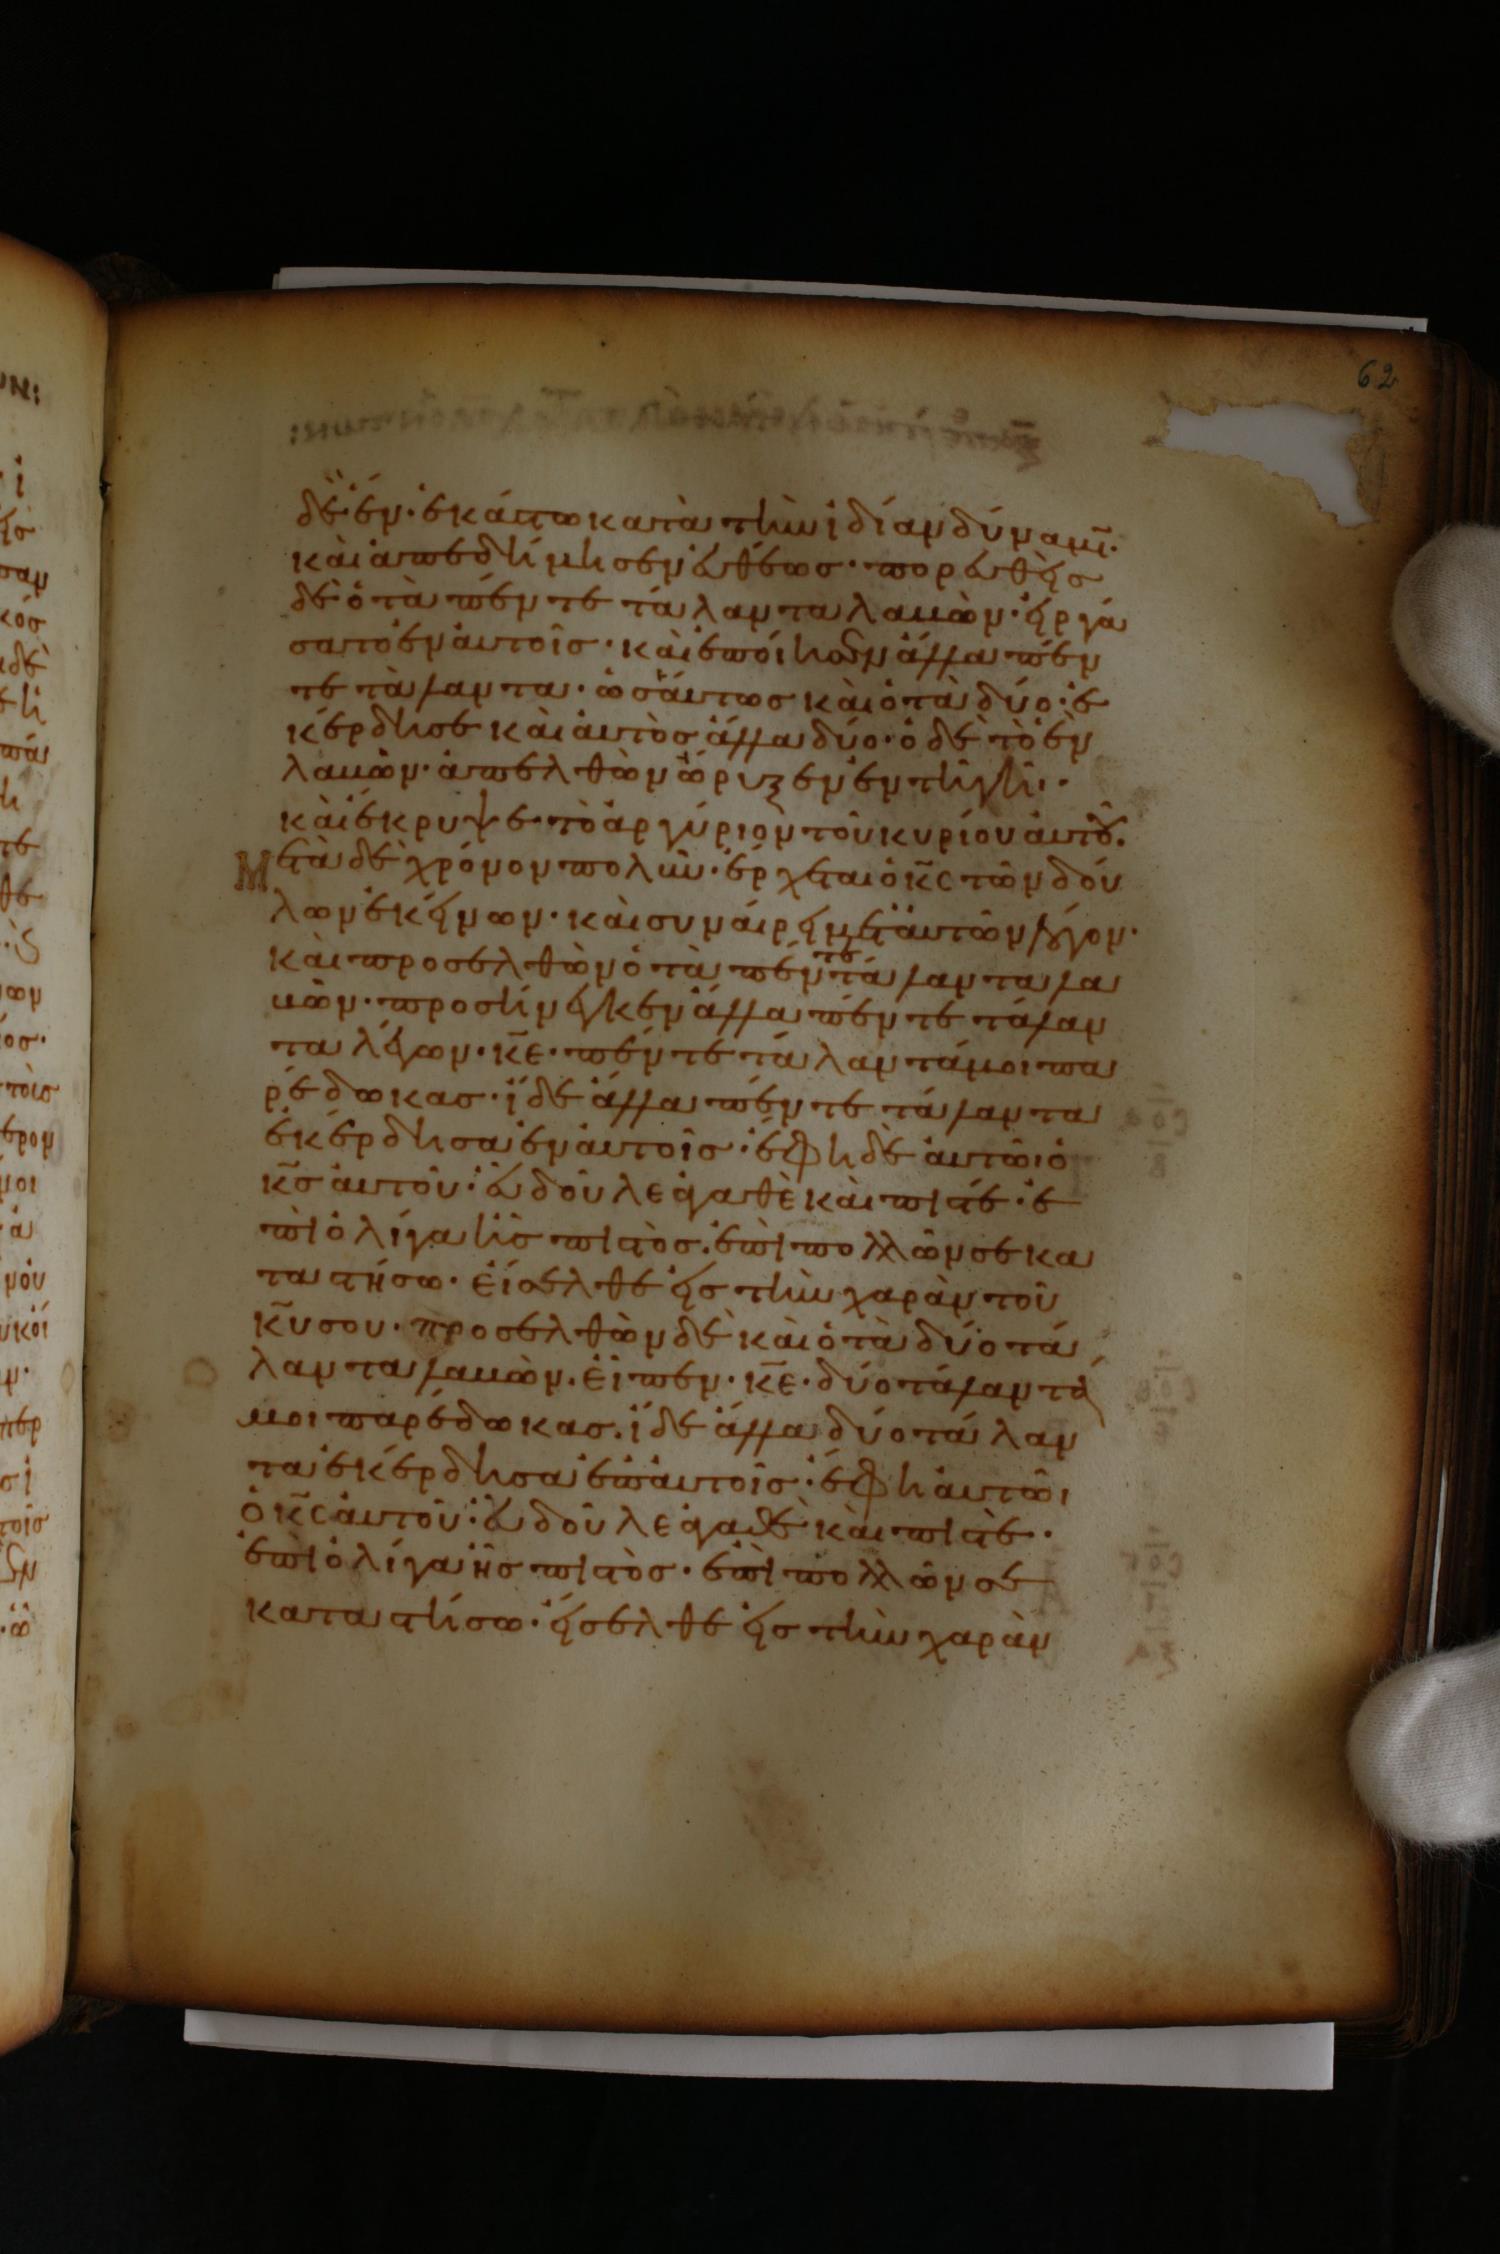 62
δὲ ἕν· ἑκάστω κατὰ τὴν ἰδίαν δύναμῑ·
καὶ ἀπεδήμησεν εὐθέως· πορευθεὶς
δὲ ὁ τὰ πέντε τάλαντα λαβὼν· εἰργά
σατο ἐν αὐτοῖς· καὶ ἐποίησεν ἄλλα πέν
τε τάλαντα· ὡσάυτως καὶ ὁ τὰ δύο· ἐ
κέρδησε καὶ ἀυτὸς ἄλλα δύο· ὁ δὲ τὸ ἓν
λαβὼν· ἀπελθὼν ὤρυξεν ἐν τῆ γῆ··
καὶ ἔκρυψε· τὸ ἀργύριον τοῦ κυρίου ἀυτοῦ.
Μετὰ δὲ χρόνον πολὺν· ἔρχεται ὁ κ̅ς τῶν δού
λων ἐκείνων· καὶ συναίρει μετ' ἀυτῶν λόγον·
καὶ προσελθὼν ὁ τὰ πέντε τάλαντα λα
βὼν· προσήνεγκεν ἄλλα πέντε τάλαν
τα λέγων· κ̅ε· πέντε τάλαντά μοι πα
ρέδωκας· ἴδε ἄλλα πέντε τάλαντα
ἐκέρδησα ἐν ἀυτοῖς· ἔφη δὲ ἀυτῶι ὁ
κ̅ς ἀυτοῦ· εὖ δοῦλε ἀγαθὲ καὶ πιστέ· ἐ
πὶ ὀλίγα ἦς πιστὸς· ἐπὶ πολλῶν σε κα
ταστήσω· ἔισελθε εἰς τὴν χαρὰν τοῦ
κ̅υ σου· προσελθὼν δὲ καὶ ὁ τὰ δύο τά
λαντα λαβὼν· ἔιπεν· κ̅ε· δύο τάλαντά
μοι παρέδωκας· ἴδε ἄλλα δύο τάλαν
τα ἐκέρδησα ἐπ' ἀυτοῖς· ἔφη ἀυτῶι
ὁ κ̅ς ἀυτοῦ· εὖ δοῦλε ἀγαθὲ καὶ πιστὲ·
ἐπὶ ὀλίγα ἦς πιστὸς· ἐπὶ πολλῶν σε
καταστήσω· εἴσελθε εἰς τὴν χαρὰν